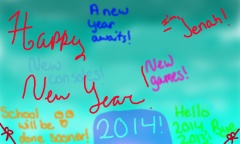 A new
year
awaits!
Jenah!
Happy
New
consoles!
New
games!
New Year
School
will be
done sooner!
2014!
Hello
2014
Bye
2013!